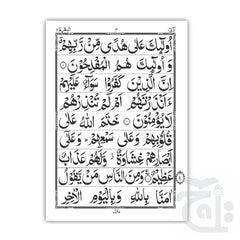 اُولٰٓئِكَ عَلٰى هُدًى مِّنْ رَّبِّهِمْ
وَ اُولٰٓئِكَ هُمُ الْمُفْلِحُوْنَ
اِنَّ الَّذِيْنَ كَفَرُوْا سَوَآءٌ عَلَيْهِمْ
ءَاَنْذَرْتَهُمْ اَمْ لَمْ تُنْذِرْهُمْ
لَا يُؤْمِنُوْنَ خَتَمَ اللّٰهُ عَلٰى
قُلُوْبِهِمْ وَعَلٰى سَمْعِهِمْ وَعَلٰٓى
اَبْصَارِهِمْ غِشَاوَةٌ وَّلَهُمْ عَذَابٌ
عَظِيْمٌ وَمِنَ النَّاسِ مَنْ يَّقُوْلُ
اٰمَنَّا بِاللّٰهِ وَبِالْيَوْمِ الْاٰخِرِ